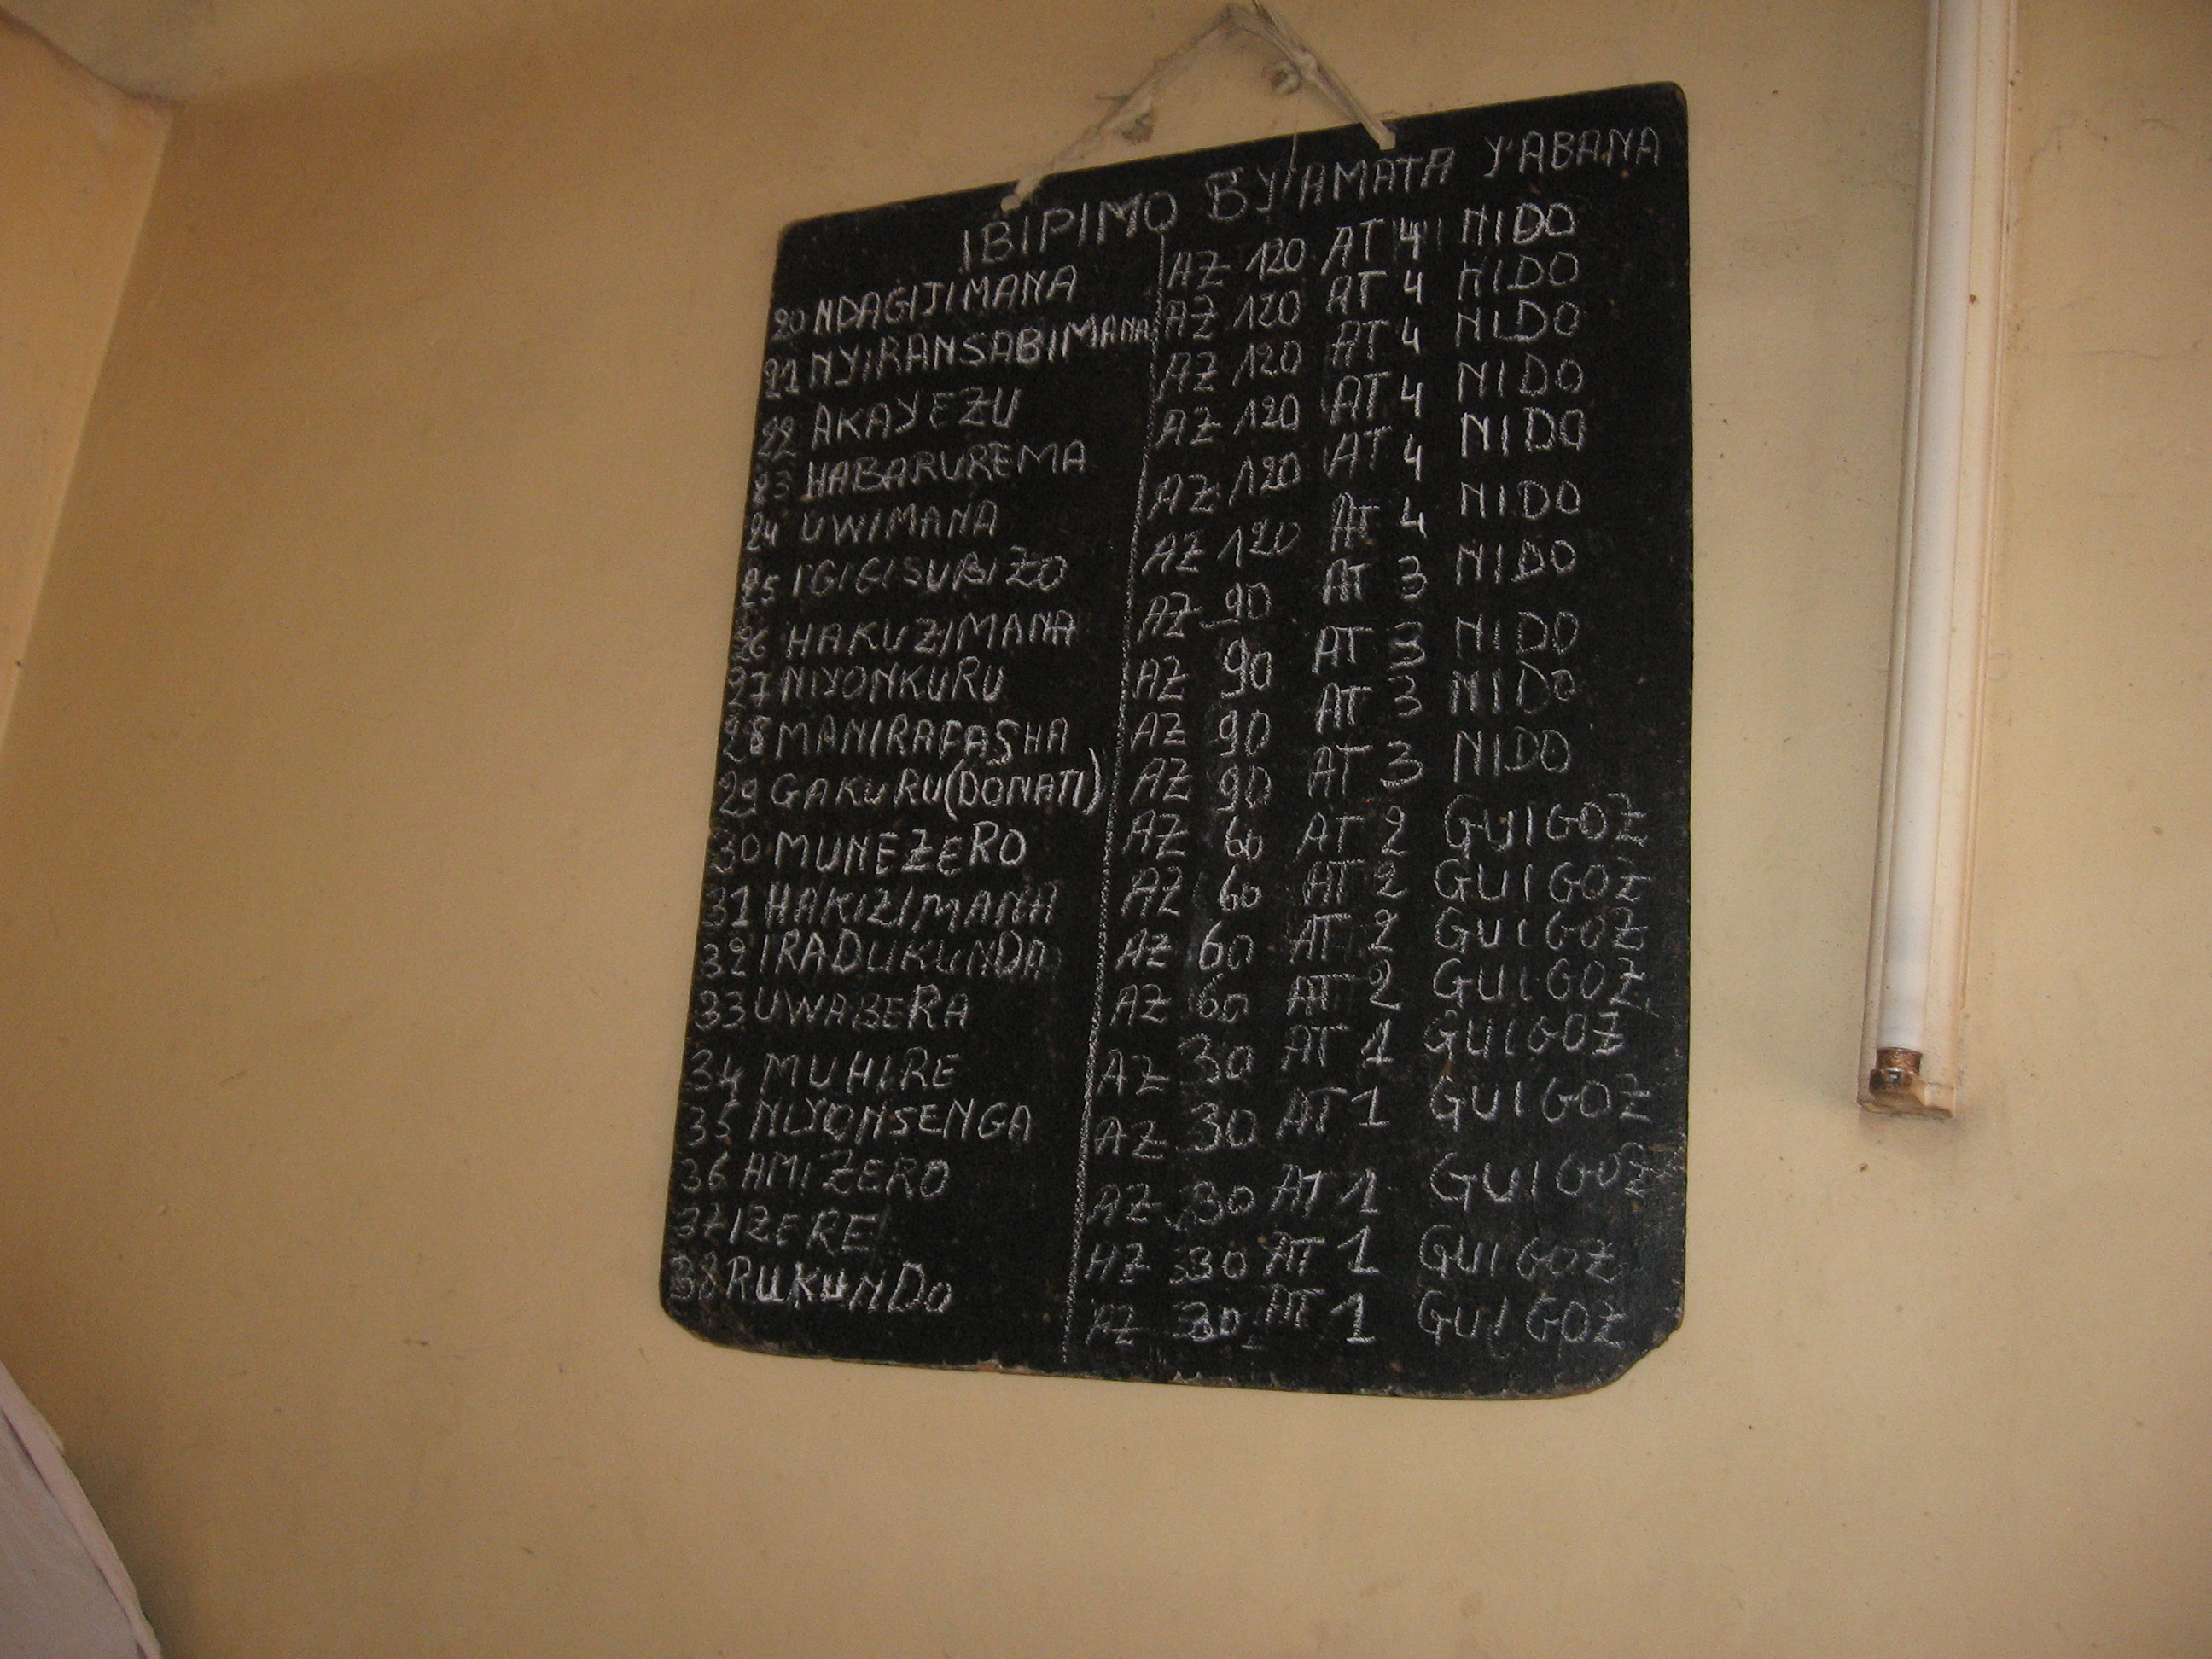 IBIPIMO BY'AMATA Y'ABANA
20 NDAGIJIMANA AZ 120 AT 4 NIDO
21 NYIRANSABIMANA AZ 120 AT 4 NIDO
22 AKAYEZU AZ 120 AT 4 NIDO
23 HABARUREMA AZ 120 AT 4 NIDO
24 UWIMANA AZ 120 AT 4 NIDO
25 IGIGISUBIZO AZ 120 AT 4 NIDO
26 HAKUZIMANA AZ 90 AT 3 NIDO
27 NIYONKURU AZ 90 AT 3 NIDO
28 MANIRAFASHA AZ 90 AT 3 NIDO
29 GAKURU (DONATI) AZ 90 AT 3 NIDO
30 MUNEZERO AZ 60 AT 2 GUIGOZ
31 HAKIZIMANA AZ 60 AT 2 GUIGOZ
32 IRADUKUNDA AZ 60 AT 2 GUIGOZ
33 UWABERA AZ 60 AT 2 GUIGOZ
34 MUHIRE AZ 30 AT 1 GUIGOZ
35 NIYONSENGA AZ 30 AT 1 GUIGOZ
36 AMIZERO AZ 30 AT 1 GUIGOZ
37 IZERE AZ 30 AT 1 GUIGOZ
38 RUKUNDO AZ 30 AT 1 GUIGOZ